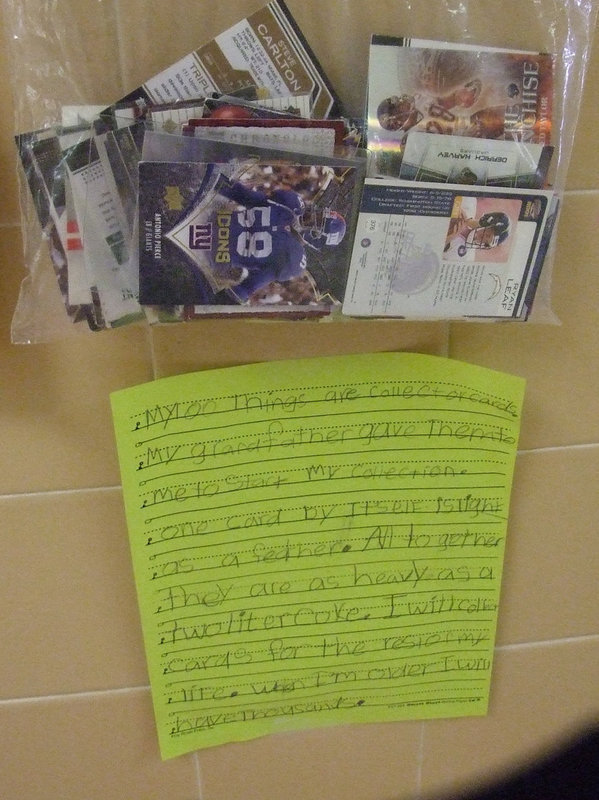 STEVE
CARLTON
TRIPL
THE
FRANCHISE
DERRICK HARVEY
ICONS
58
NY
ANTONIO PIERCE
LB GIANTS
376
RYAN
LEAF
My 100 Things are collector cards
My grandfather gave Them to
me to Start My collection.
one card by ITself is light
as a feather. All to gether
They are as heavy as a
two liter Coke. I will collect
cards for the rest of my
life. when I'm older I will
have thousand.